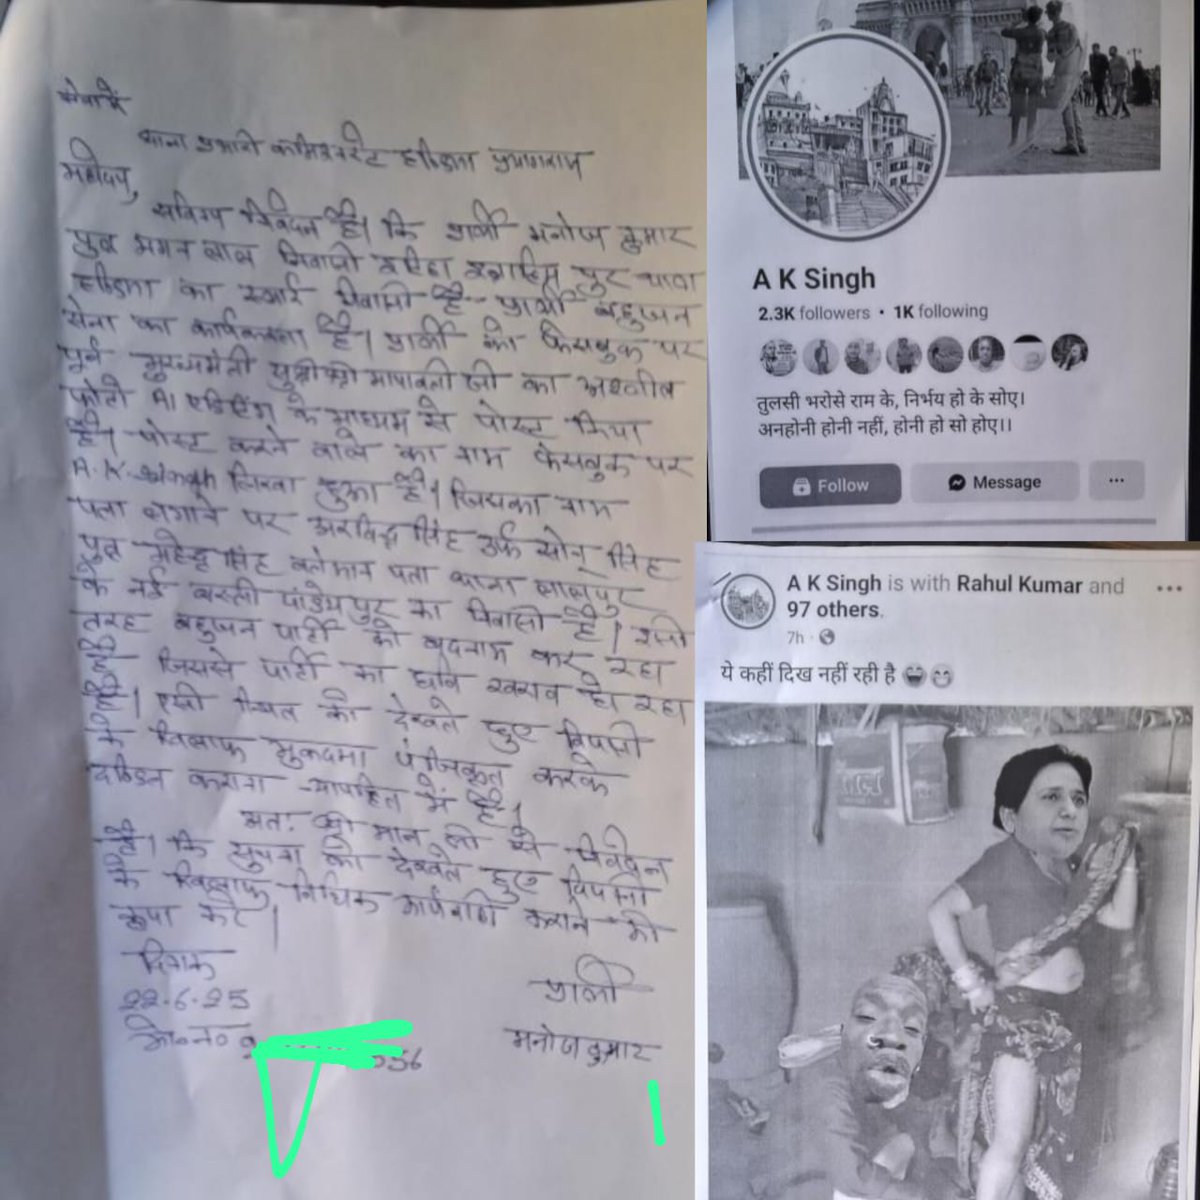 सेवा में
थाना प्रभारी कमिश्नरेट हण्डिया प्रयागराज
महोदय,
सविनय निवेदन है। कि प्रार्थी मनोज कुमार
पुत्र मगन लाल निवासी इब्राहिम पुर थाना
हण्डिया का स्थाई निवासी है प्रार्थी बहुजन
सेना का कार्यकर्ता है। प्रार्थी को फेसबुक पर
पूर्व मुख्यमंत्री सुश्री मायावती जी का अश्लील
फोटो AI एडिटिंग के माध्यम से पोस्ट किया
है। पोस्ट करने वाले का नाम फेसबुक पर
A.K. Singh लिखा हुआ है। जिसका नाम
पता लगाने पर अरविन्द सिंह उर्फ सोनू सिंह
पुत्र महेन्द्र सिंह वर्तमान पता थाना लालपुर
के नई बस्ती पांडेयपुर का निवासी है। इसी
तरह बहुजन पार्टी को बदनाम कर रहा
है जिससे पार्टी का छवि खराब हो रहा
है। ऐसी स्थित को देखते हुए विपक्षी
के खिलाफ मुकदमा पंजिकृत करके
दण्डित कराना न्यायहित में है।
अतः श्री मान जी से निवेदन
है। कि सूचना को देखते हुए विपक्षी
के खिलाफ विधिक कार्यवाही कराने की
कृपा करें।
दिनांक
22.6.25
मो०न० 9
556
प्रार्थी
मनोज कुमार
A K Singh
2.3K followers • 1K following
तुलसी भरोसे राम के, निर्भय हो के सोए।
अनहोनी होनी नहीं, होनी हो सो होए।।
Follow
Message
A K Singh is with Rahul Kumar and
97 others.
7h
ये कहीं दिख नहीं रही है 😀😁